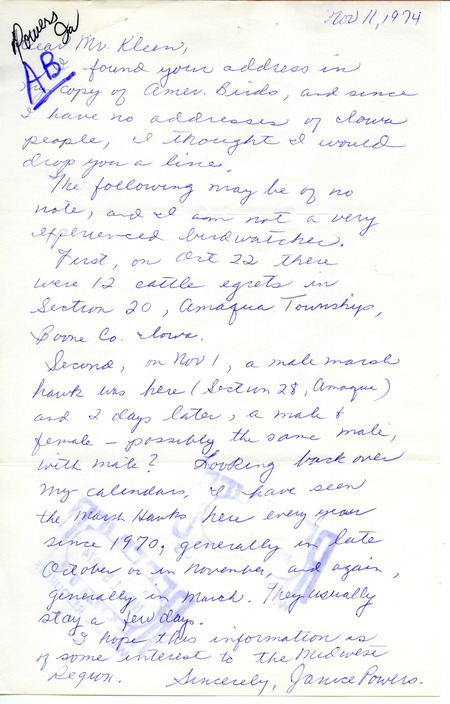 Nov 11, 1974
Powers
Ia
AB
Dear Mr. Kleen,
I found your address in
copy of Amer. Birds, and since
I have no addresses of Iowa
people, I thought I would
drop you a line.
The following may be of no
note, and I am not a very
experienced birdwatcher.
First, on Oct 22 there
were 12 cattle egrets in
Section 20, Amaqua Township,
Boone Co. Iowa.
Second, on Nov 1, a male marsh
hawk was here (Section 28, Amaqua)
and 2 days later, a male &
female - possibly the same male,
with mate? Looking back over
my calendars, I have seen
the Marsh Hawks here every year
since 1970, generally in late
October or in November, and again,
generally in March. They usually
stay a few days.
I hope this information is
of some interest to the Midwest
Region. Sincerely, Janice Powers.